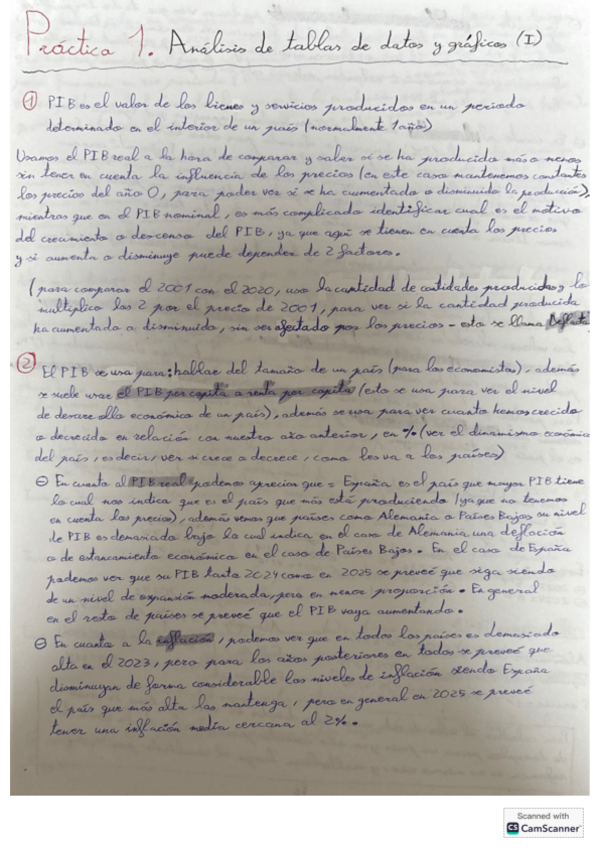 Práctica 1. Análisis de tablas de datos y gráficos (I)
① PIB es el valor de los bienes y servicios producidos en un periodo
determinado en el interior de un país (normalmente 1 año)
Usamos el PIB real a la hora de comparar y saber si se ha producido más o menos
sin tener en cuenta la influencia de los precios (en este caso mantenemos constantes
los precios del año 0, para poder ver si se ha aumentado o disminuido la producción),
mientras que en el PIB nominal, es más complicado identificar cual es el motivo
del crecimiento o descenso del PIB, ya que aquí se tienen en cuenta los precios
y si aumenta o disminuye puede depender de 2 factores.
(para comparar el 2001 con el 2020, uso la cantidad de cantidades producidas y lo
multiplico las 2 por el precio de 2001, para ver si la cantidad producida
ha aumentado o disminuido, sin ser afectado por los precios - esto se llama
② El PIB se usa para: hablar del tamaño de un país (para los economistas), además
se suele usar el PIB per capita o renta per capita (esto se usa para ver el nivel
de desarrollo económico de un país), además se usa para ver cuanto hemos crecido
o decrecido en relación con nuestro año anterior, en % (ver el dinamismo económico
del país, es decir, ver si crece o decrece, como les va a los países)
⊖ En cuanto al PIB real podemos apreciar que = España es el país que mayor PIB tiene
lo cual nos indica que es el país que más está produciendo (ya que no tenemos
en cuenta los precios), además vemos que países como Alemania o Países Bajos su nivel
de PIB es demasiado bajo lo cual indica en el caso de Alemania una deflación
o de estancamiento económico en el caso de Países Bajos. En el caso de España
podemos ver que su PIB tanto 2024 como en 2025 se preveé que siga siendo
de un nivel de expansión moderada, pero en menor proporción. En general
en el resto de países se preveé que el PIB vaya aumentando.
⊖ En cuanto a la inflación, podemos ver que en todos los países es demasiado
alta en el 2023, pero para los años posteriores en todos se preveé que
disminuyan de forma considerable los niveles de inflación siendo España
el país que más alta las mantenga, pero en general en 2025 se preveé
tener una inflación media cercana al 2%.
Scanned with
CS CamScanner